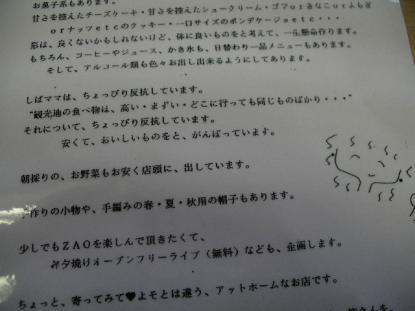 お菓子系もあります。
甘さを控えたチーズケーキ・甘さを控えたシュークリーム・ゴマorきなこorよもぎ
orナッツetcのクッキー・一口サイズのポンデケージョetc・・・
形は、良くないかもしれないけど、体に良いものをと考えて、一生懸命作ります。
もちろん、コーヒーやジュース、かき氷も、日替わり一品メニューもあります。
そして、アルコール類も色々お出し出来るようにしてあります。
しばママは、ちょっぴり反抗しています。
“観光地の食べ物は、高い・まずい・どこに行っても同じものばかり・・・”
それについて、ちょっぴり反抗しています。
安くて、おいしいものをと、がんばっています。
朝採りの、お野菜もお安く店頭に、出しています。
作りの小物や、手編みの春・夏・秋用の帽子もあります。
少しでもZAOを楽しんで頂きたくて、
夕焼けオープンフリーライブ（無料）なども、企画します。
ちょっと、寄ってみて♥よそとは違う、アットホームなお店です。